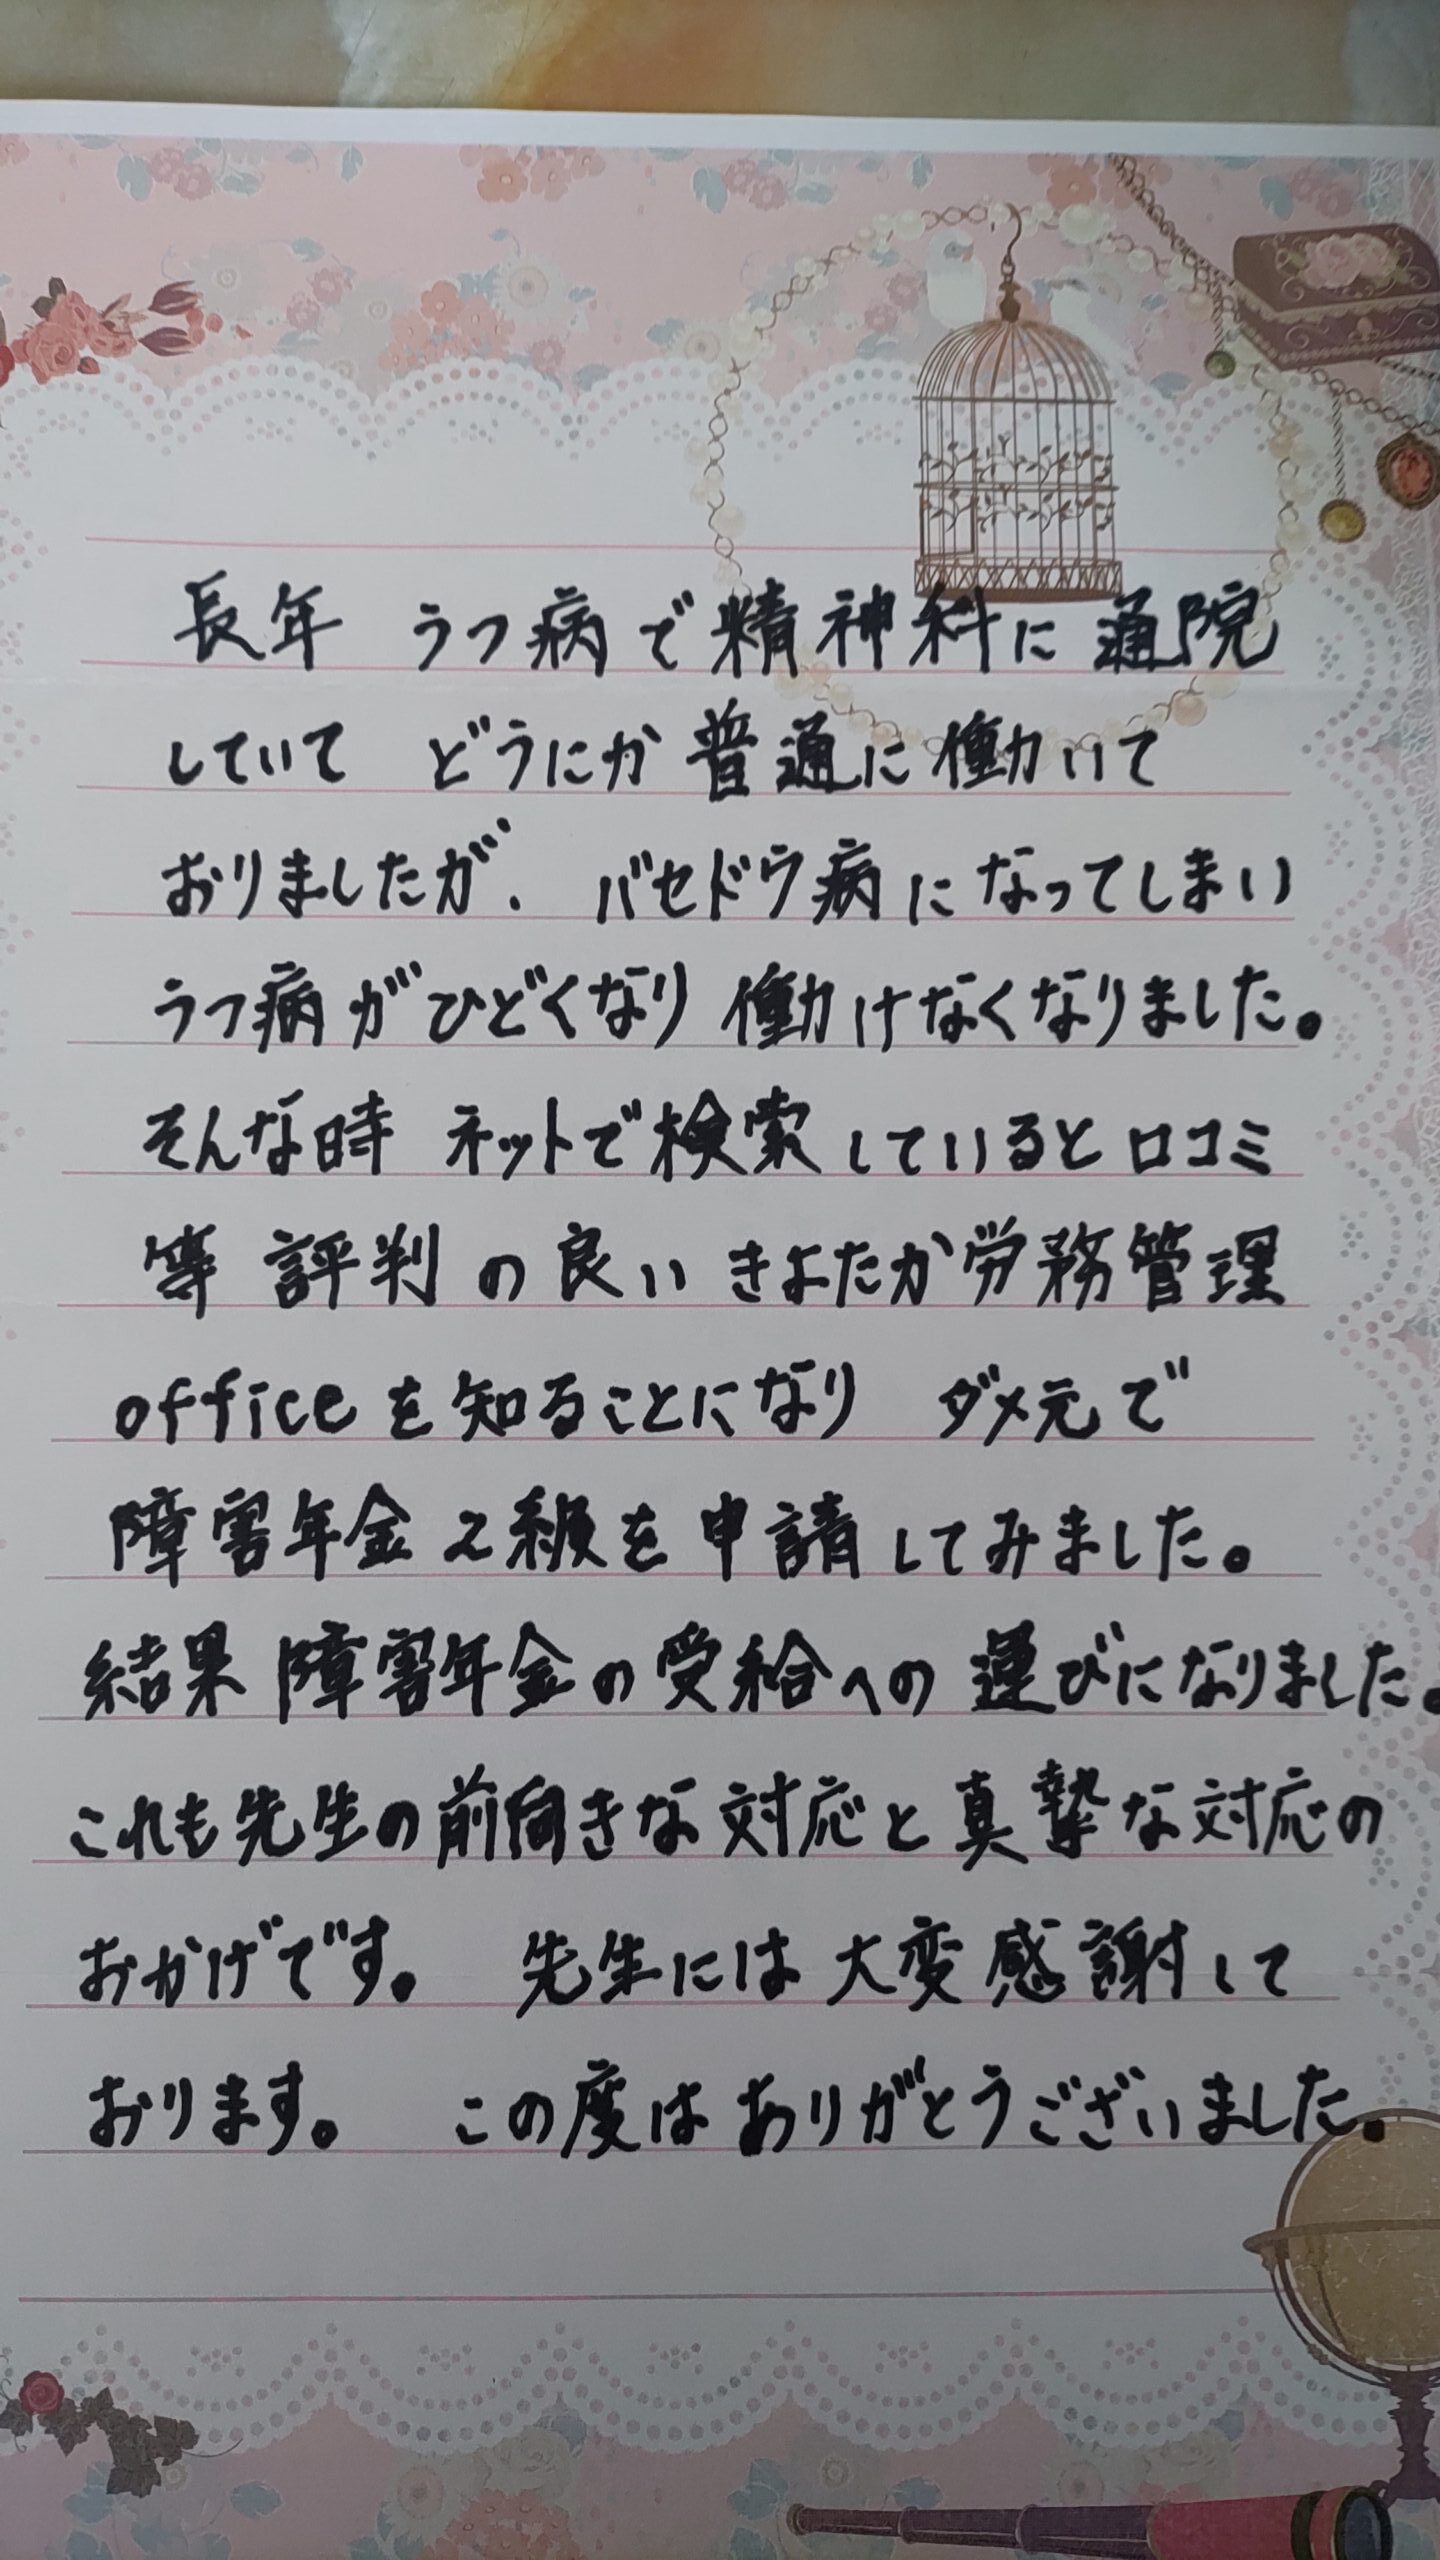 長年 うつ病で精神科に通院
していて どうにか普通に働いて
おりましたが、バセドウ病になってしまい
うつ病がひどくなり働けなくなりました。
そんな時 ネットで検索していると口コミ
等 評判の良いきよたか労務管理
officeを知ることになり ダメ元で
障害年金2級を申請してみました。
結果 障害年金の受給への運びになりました。
これも先生の前向きな対応と真摯な対応の
おかげです。 先生には大変感謝して
おります。 この度はありがとうございました。